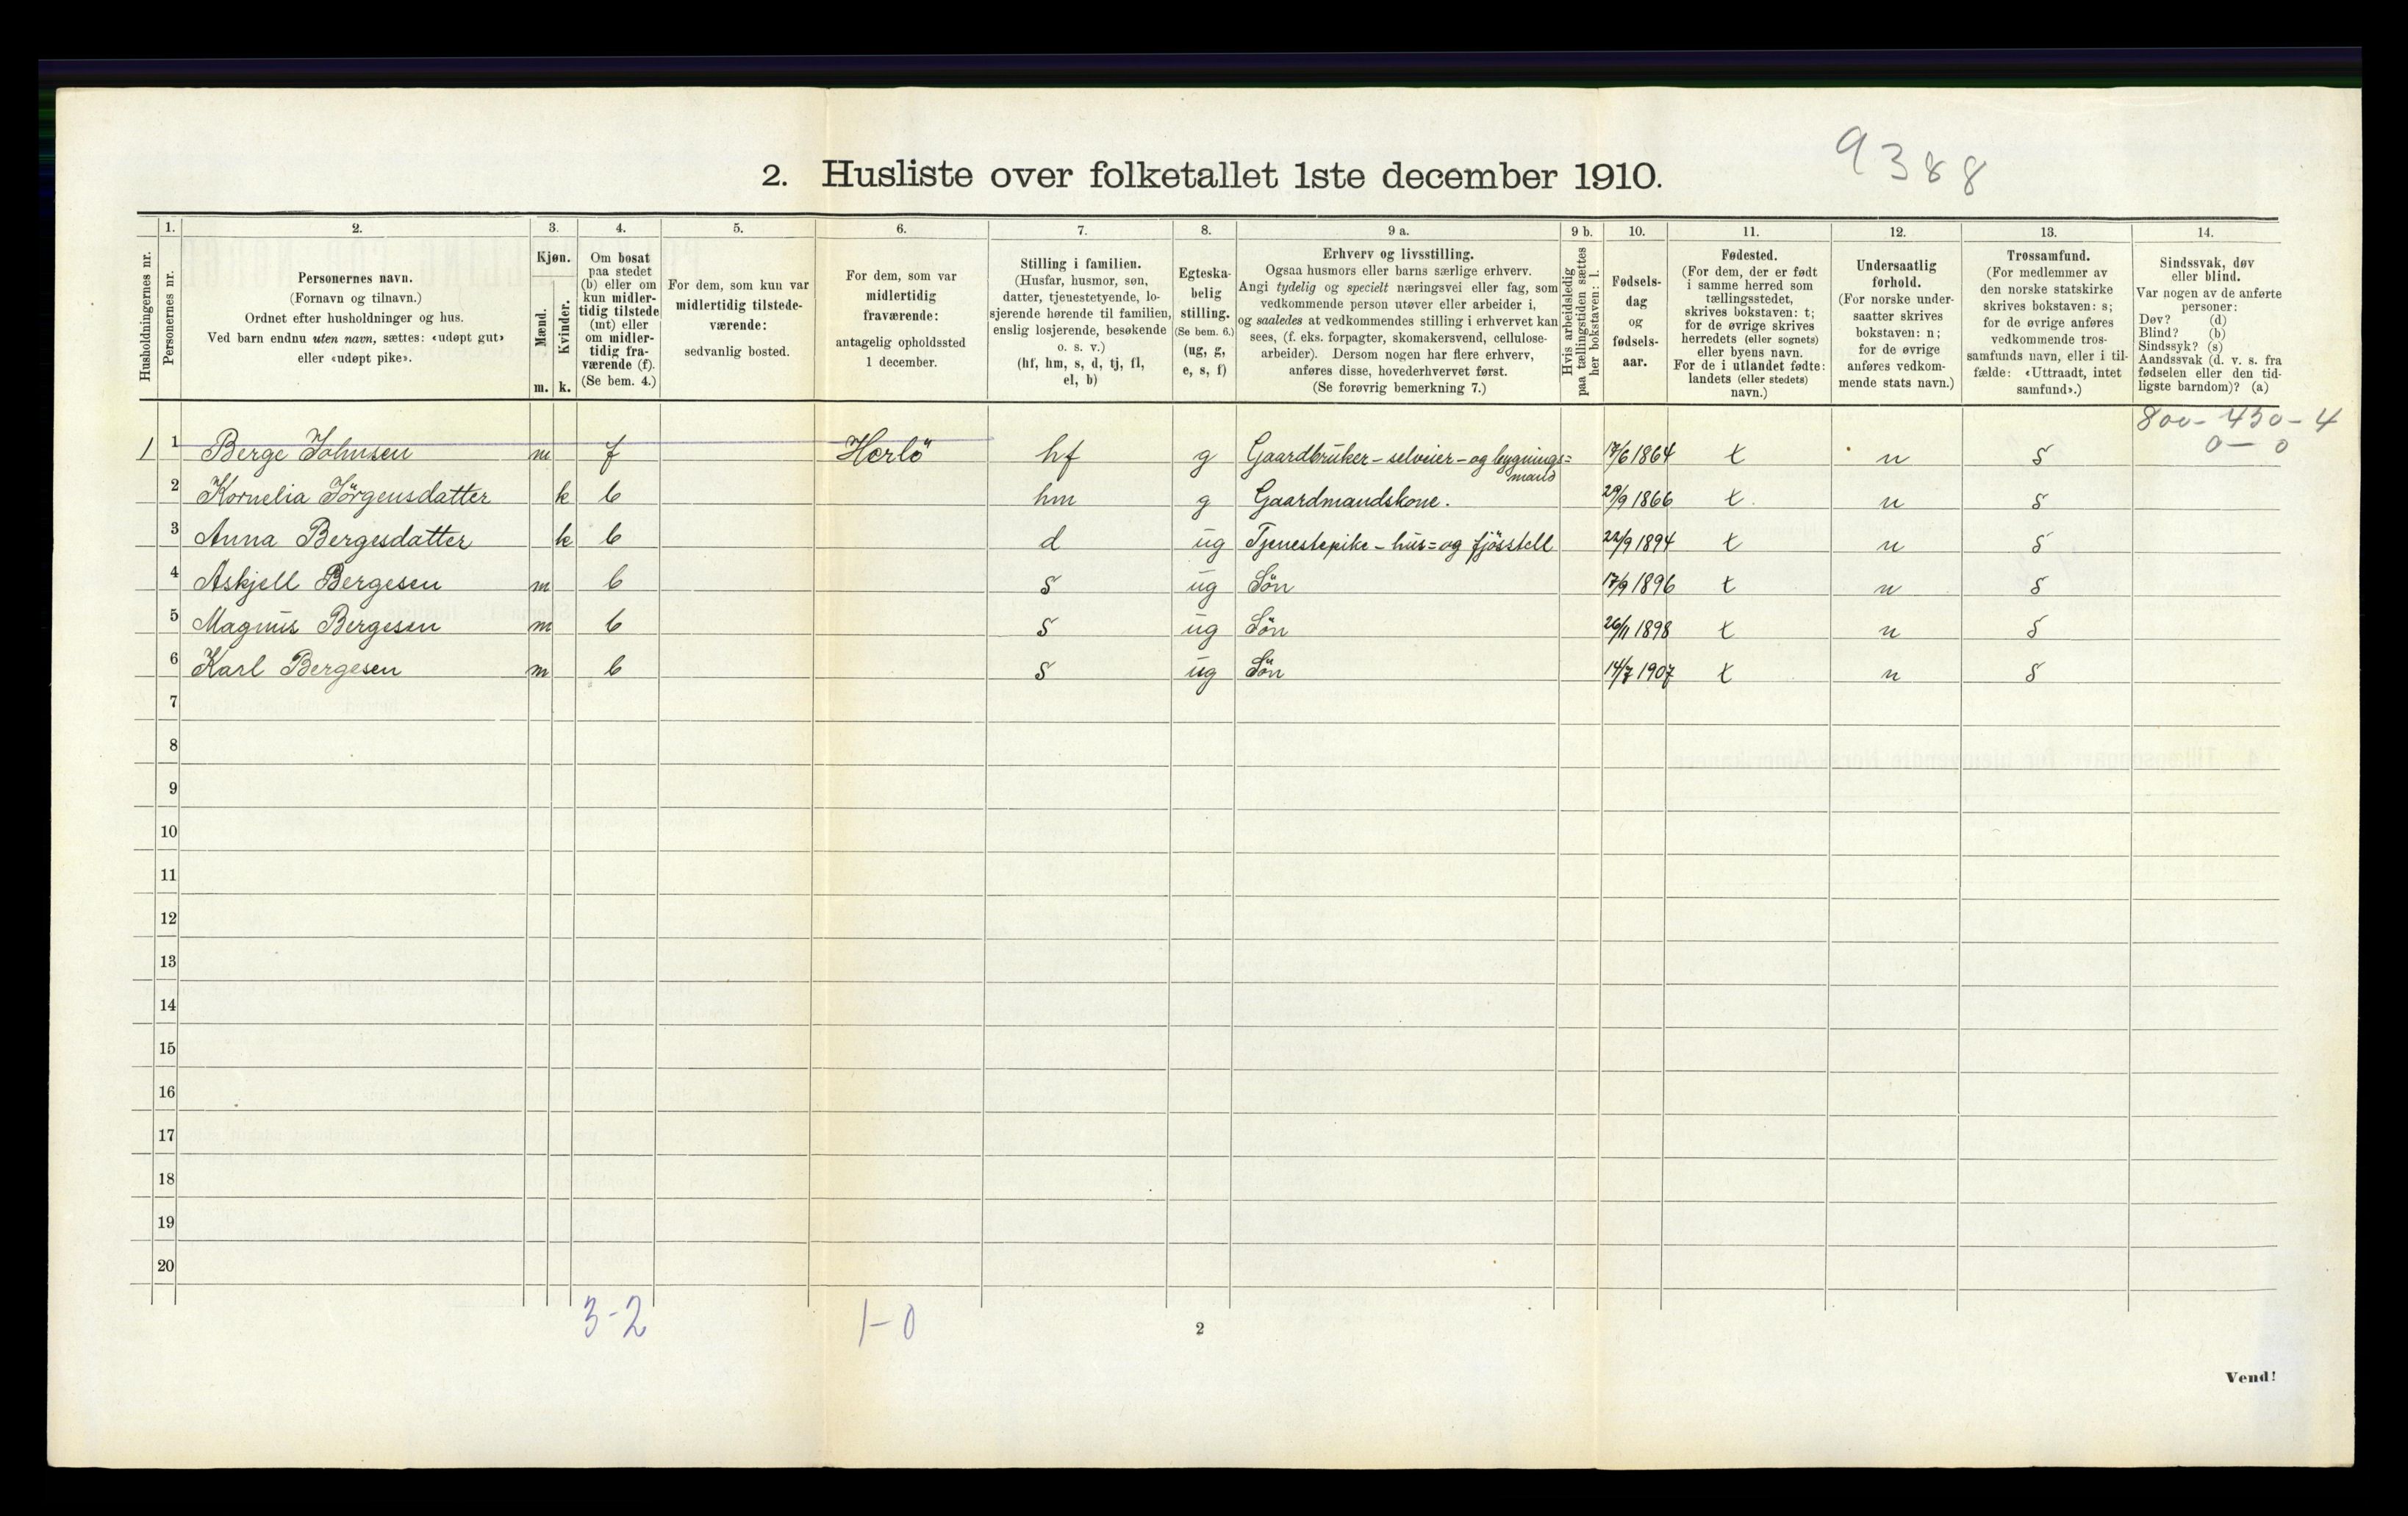 9388
2. Husliste over folketallet 1ste december 1910.
Husholdningernes nr.
1.
Personernes nr.
2.
Personernes navn.
(Fornavn og tilnavn.)
Ordnet efter husholdninger og hus.
Ved barn endnu uten navn, sættes: «udøpt gut»
eller «udøpt pike».
3.
Kjøn.
Mænd.
m.
Kvinder.
k.
4.
Om bosat
paa stedet
(b) eller om
kun midler-
tidig tilstede
(mt) eller
om midler-
tidig fra-
værende (f).
(Se bem. 4.)
5.
For dem, som kun var
midlertidig tilstede-
værende:
sedvanlig bosted.
6.
For dem, som var
midlertidig
fraværende:
antagelig opholdssted
1 december.
7.
Stilling i familien.
(Husfar, husmor, søn,
datter, tjenestetyende, lo-
sjerende hørende til familien,
enslig losjerende, besøkende
o. s. v.)
(hf, hm, s, d, tj, fl,
el, b)
8.
Egteska-
belig
stilling.
(Se bem. 6.)
(ug, g,
e, s, f)
9 a.
Erhverv og livsstilling.
Ogsaa husmors eller barns særlige erhverv.
Angi tydelig og specielt næringsvei eller fag, som
vedkommende person utøver eller arbeider i,
og saaledes at vedkommendes stilling i erhvervet kan
sees, (f. eks. forpagter, skomakersvend, cellulose-
arbeider). Dersom nogen har flere erhverv,
anføres disse, hovederhvervet først.
(Se forøvrig bemerkning 7.)
9 b.
Hvis arbeidsledig
paa tællingstiden sættes
her bokstaven: l.
10.
Fødsels-
dag
og
fødsels-
aar.
11.
Fødested.
(For dem, der er født
i samme herred som
tællingsstedet,
skrives bokstaven: t;
for de øvrige skrives
herredets (eller sognets)
eller byens navn.
For de i utlandet fødte:
landets (eller stedets)
navn.)
12.
Undersaatlig
forhold.
(For norske under-
saatter skrives
bokstaven: n;
for de øvrige
anføres vedkom-
mende stats navn.)
13.
Trossamfund.
(For medlemmer av
den norske statskirke
skrives bokstaven: s;
for de øvrige anføres
vedkommende tros-
samfunds navn, eller i til-
fælde: «Uttraadt, intet
samfund».)
14.
Sindssvak, døv
eller blind.
Var nogen av de anførte
personer:
Døv? (d)
Blind? (b)
Sindssyk? (s)
Aandssvak (d. v. s. fra
fødselen eller den tid-
ligste barndom)? (a)
800-450-4
0-0
1 1 Berge Johnsen m f Herlö hf g Gaardbruker - selveier - og bygnings=
mand 17/6 1864 t n s
2 Kornelia Jörgensdatter k b hm g Gaardmandskone. 29/9 1866 t. n s
3 Anna Bergesdatter k b d ug Tjenestepike - hus= og fjösstell 22/9 1894 t n s
4 Askjell Bergesen m b s ug Sön 17/9 1896 t n s
5 Magnus Bergesen m b s ug Sön 26/11 1898 t n s
6 Karl Bergesen m b s ug Sön 14/7 1907 t n s
7
8
9
10
11
12
13
14
15
16
17
18
19
20
3-2 1-0
2
Vend!